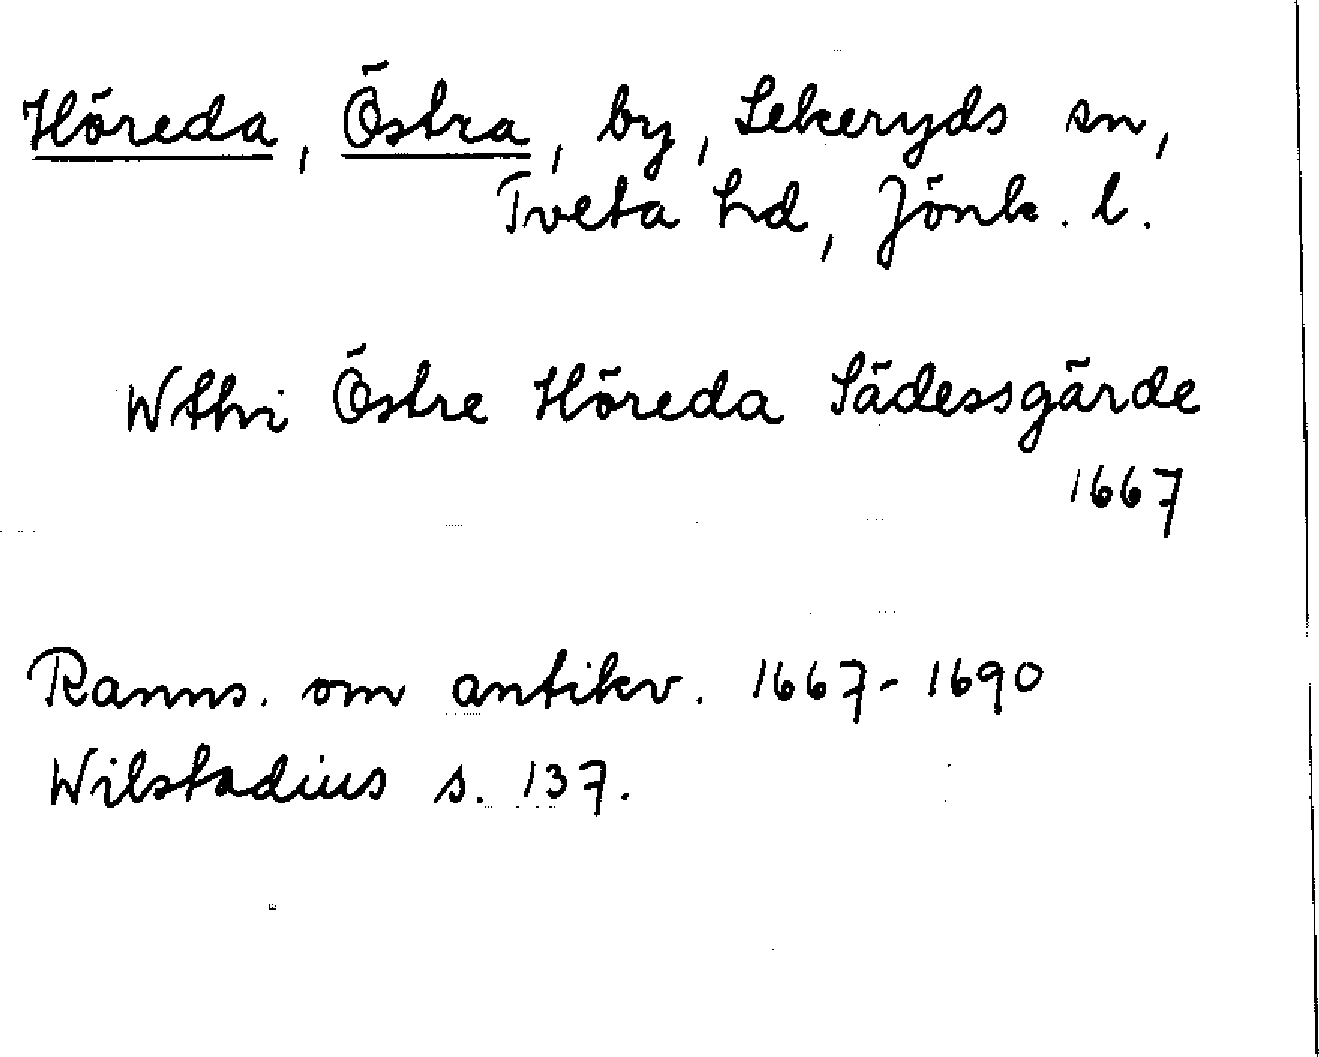 Höreda, Östra, by, Lekeryds sn,
Tveta hd, Jönk. l.
Wthi Östre Höreda Sädessgärde
1667
Ranns. om antikv. 1667-1690
Wilstadius s. 137.